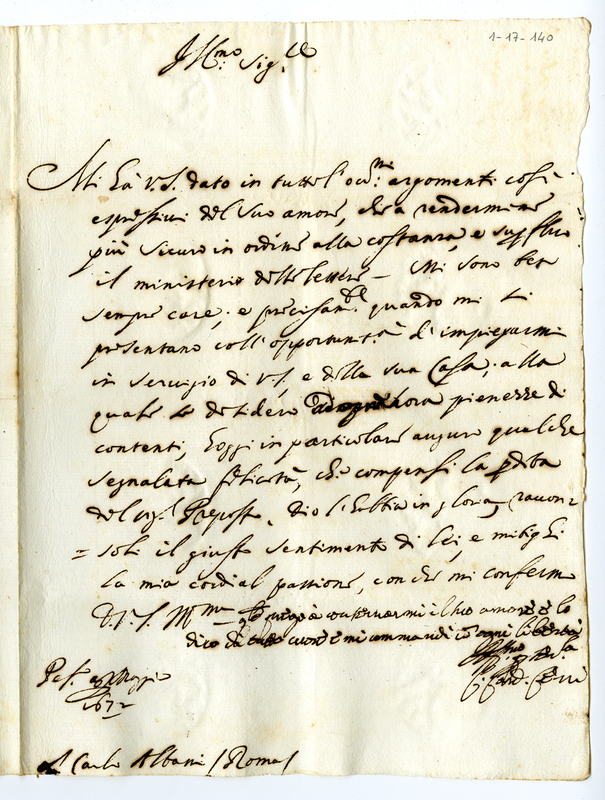 1-17-140
Ill.mo Sig.re
Mi hà V.S. dato in tutte l'occ.ni argomenti così
espressivi del suo amore, che a rendermene
più sicuro in ordine alla costanza, è superfluo
il ministerio delle lettere. Mi sono ben
sempre care, e precisam.te quando mi si
presentano coll'opportunità d'impiegarmi
in servigio di V.S. e della sua Casa, alla
quale desidero ogn'hora pienezze di
contenti, hoggi in particolare auguro qualche
segnalata felicità, che compensi la perdita
del Sig.r Preposto. Dio l'habbia in gloria, racon=
=soli il giusto sentimento di lei, e mitighi
la mia cordial passione, con che mi confermo
D.V.S. Ill.ma la prego à conservarmi il suo amore e lo
dico di tutto cuore e mi commandi con ogni libertà
Pes.o Maggio
1672
Card.
Carlo Albani (Roma)